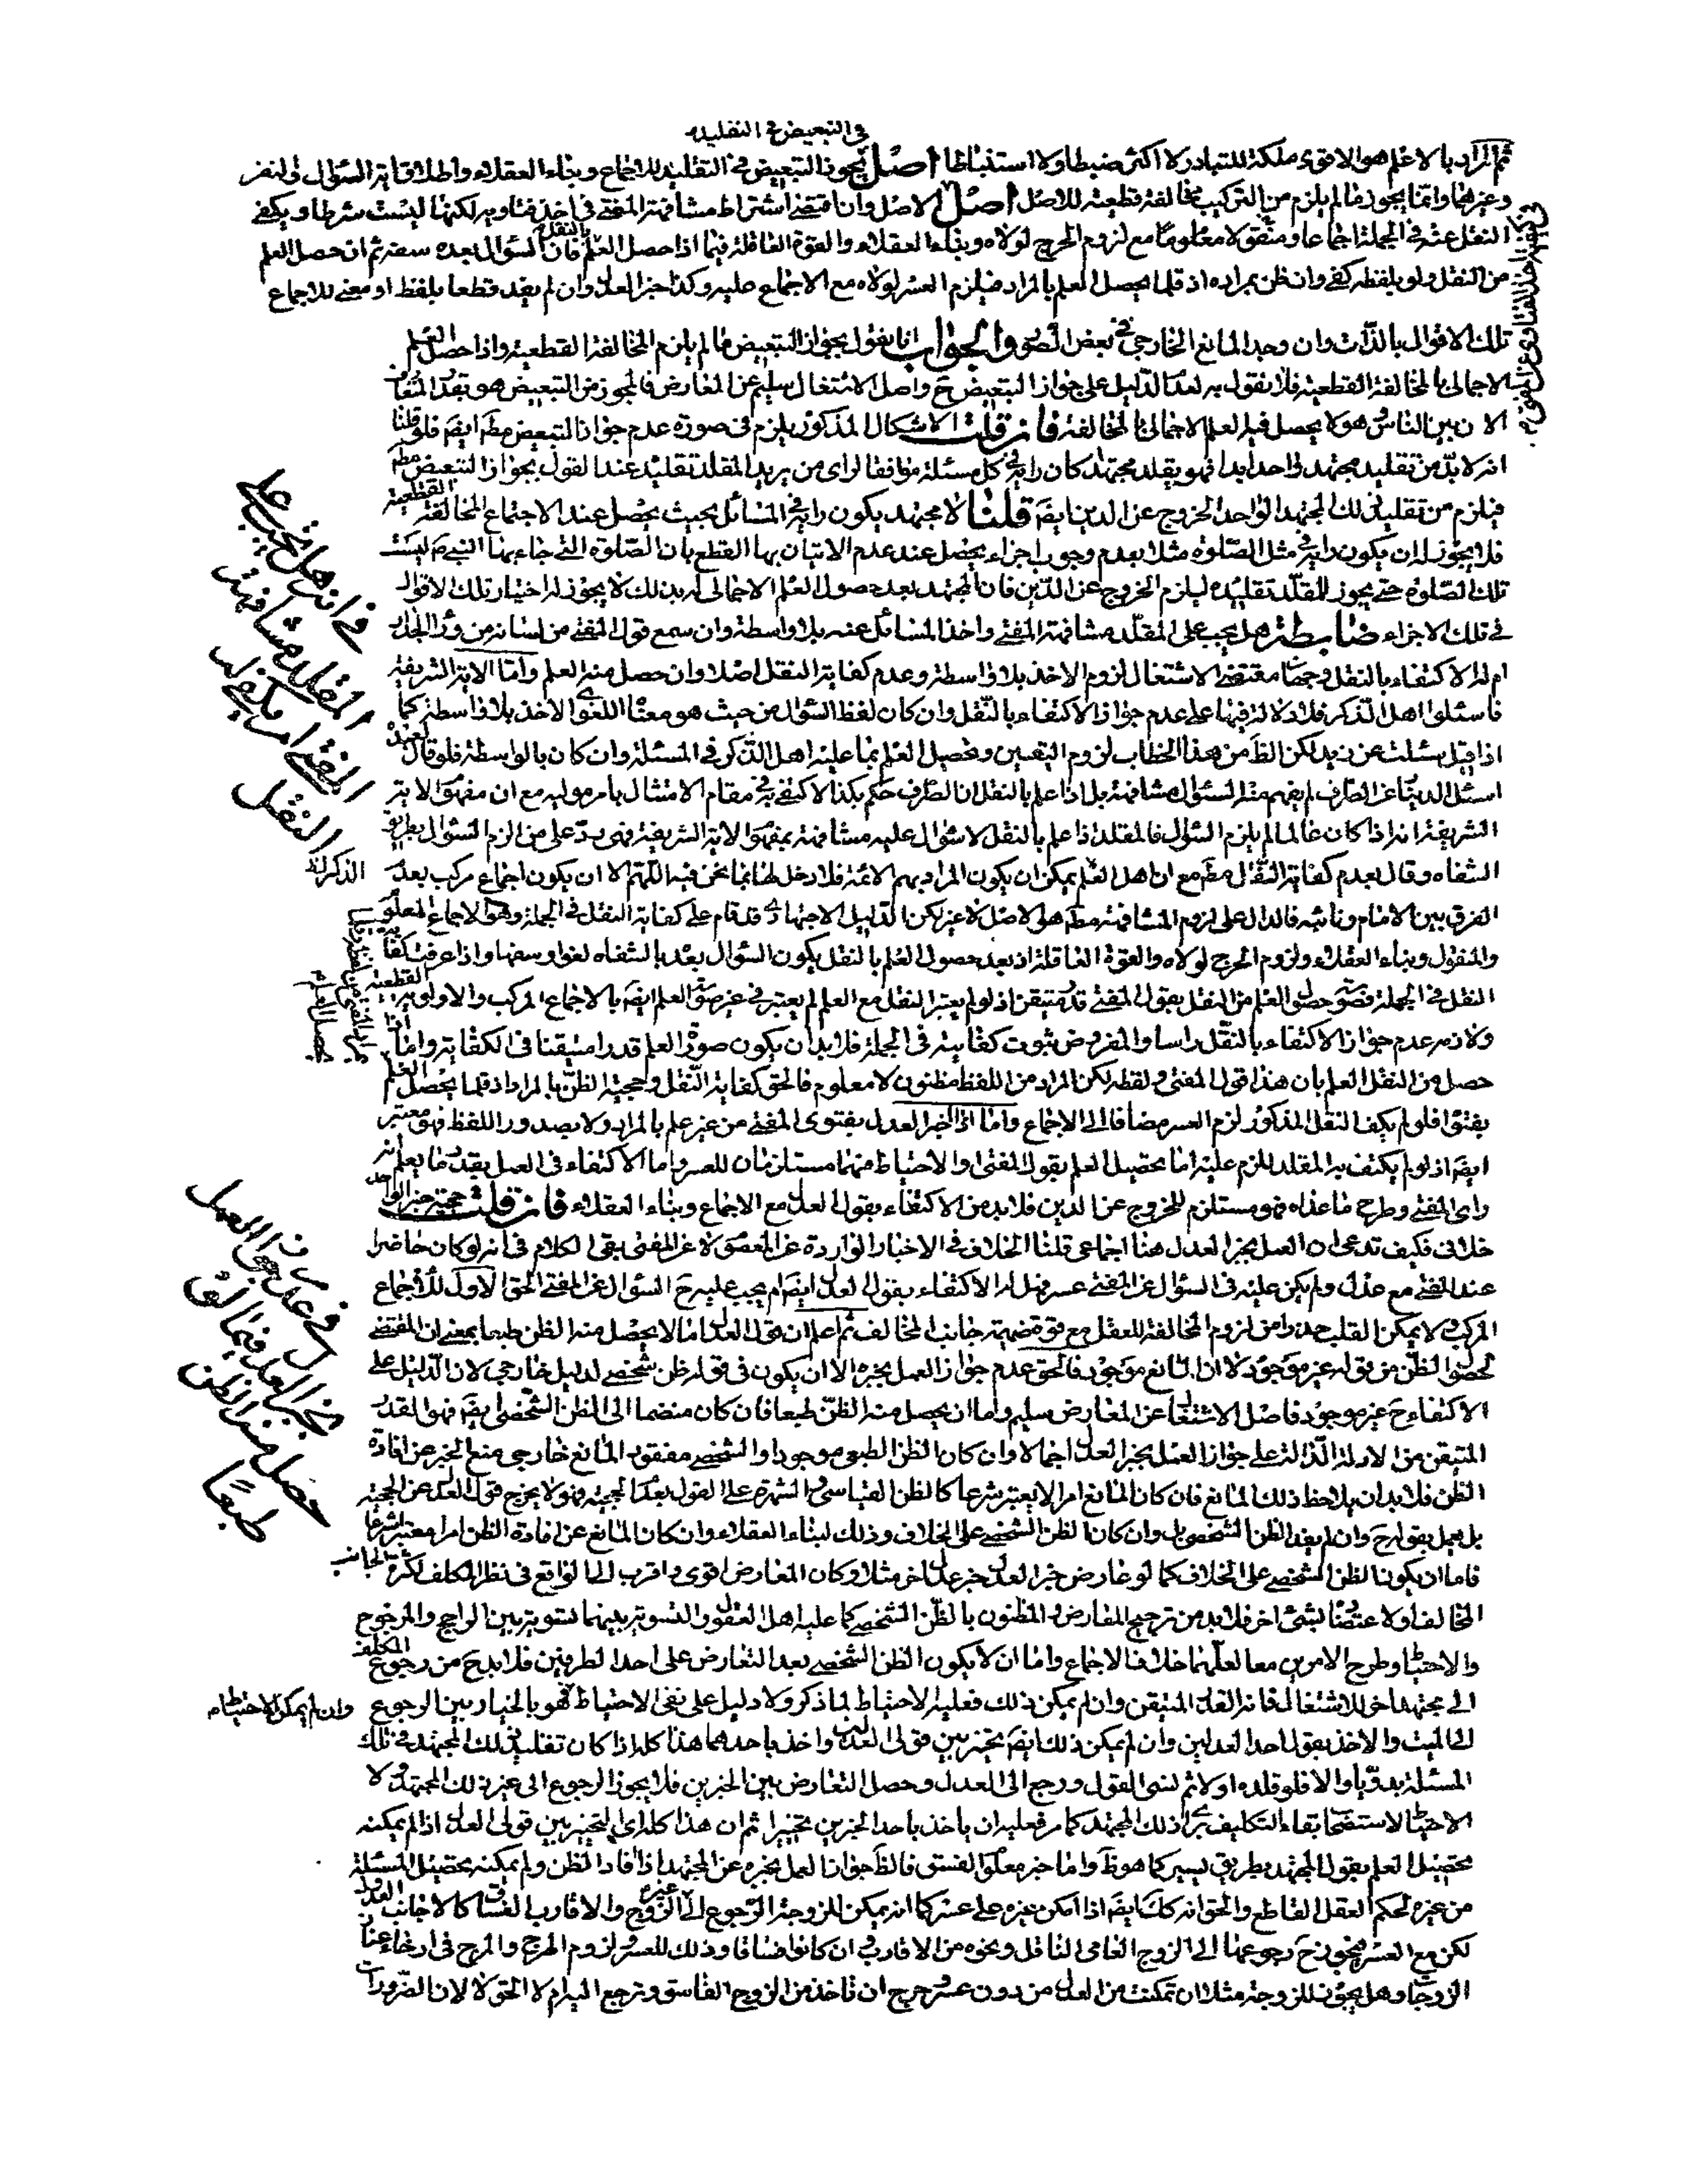 في التبعيض في التقليد
ثم المراد بالاعلم هو الاقوى ملكة للتبادر لا اكثر ضبطا ولا استنباطا اصل يجوز التبعيض في التقليد للاجماع وبناء العقلاء واطلاق اية السؤال والنفر
وغيرهما وانما يجوز ما لم يلزم من التركيب مخالفة قطعية للاصل اصل الاصل وان اقتضى اشتراط مشافهة المفتي في اخذ فتاويه لكنها ليست شرطا ويكفي
النقل عنه في الجملة اجماعا ومنقولا معلوما مع لزوم الحرج لولاه وبناء العقلاء والقوة العاقلة فيما اذا حصل العلم بالنقل فان السؤال بعده سفه ثم ان حصل العلم
من النقل ولو بلفظه كفى وان ظن بمراده اذ قلما يحصل العلم بالمراد فيلزم العسر لولاه مع الاجماع عليه وكذا خبر العدل وان لم يفد قطعا بلفظ او معنى للاجماع
تلك الاقوال بالذات وان وجد المانع الخارجي في بعض الصور والجواب انا نقول بجواز التبعيض ما لم يلزم المخالفة القطعية واذا حصل العلم
الاجمالي بالمخالفة القطعية فلا نقول به لعدم الدليل على جواز التبعيض ح واصل الاشتغال سليم عن المعارض فالمجوز من التبعيض هو بقدر المتعارف
الان بين الناس وهو لا يحصل فيه العلم الاجمالي بالمخالفة فان قلت الاشكال المذكور يلزم في صورة عدم جواز التبعيض مطم ايضم فلو قلنا
انه لا بد من تقليد مجتهد واحد ابدا فهو يقلد مجتهدا كان رايه في كل مسئلة موافقا لراى من يريد المقلد تقليده عند القول بجواز التبعيض مطم
فيلزم من تقليد ذلك المجتهد الواحد الخروج عن الدين ايضم قلنا لا مجتهد يكون رايه في المسائل بحيث يحصل عند الاجتماع المخالفة القطعية
فلا يجوز له ان يكون رايه في مثل الصلوة مثلا بعدم وجوب اجزاء يحصل عند عدم الاتيان بها القطع بان الصلوة التي جاء بها النبي ص ليست
تلك الصلوة حتى يجوز للمقلد تقليده ليلزم الخروج عن الدين فان المجتهد بعد حصول العلم الاجمالي له بذلك لا يجوز له اختيار تلك الاقوال
في تلك الاجزاء ضابطة هل يجب على المقلد مشافهة المفتي واخذ المسائل عنه بلا واسطة وان سمع قول المفتي من لسانه من وراء الجدار
ام له الاكتفاء بالنقل وجهان مقتضى الاشتغال لزوم الاخذ بلا واسطة وعدم كفاية النقل اصلا وان حصل منه العلم واما الاية الشريفة
فاسئلوا اهل الذكر فلا دلالة فيها على عدم جواز الاكتفاء بالنقل وان كان لفظ السؤال من حيث هو معناه اللغوى الاخذ بلا واسطة كما
اذا قيل سئلت عن زيد لكن الظ من هذا الخطاب لزوم التعيين وتحصيل العلم بما عليه اهل الذكر في المسئلة وان كان بالواسطة فلو قال لعبده
الشريفة انه اذا كان عالما لم يلزم السؤال فالمقلد اذا علم بالنقل لا سؤال عليه مشافهة بمفهوم الاية الشريفة فهى ترد على من الزم السؤال بطريق
الشفاه وقال بعدم كفاية النقل مطم مع ان اهل العلم يمكن ان يكون المراد بهم الائمة فلا دخل لها بما نحن فيه اللهم الا ان يكون اجماع مركب بعدم
الفرق بين الامام ونائبه فالدال على لزوم المشافهة مطم هو الاصل لا غير لكن الدليل الاجتهادي قد قام على كفاية النقل في الجملة وهو الاجماع المعلوم
والمنقول وبناء العقلاء ولزوم الحرج لولاه والقوة العاقلة اذ بعد حصول العلم بالنقل يكون السؤال بعده بالشفاه لغوا وسفها واذا عرفت كفاية
النقل في الجملة فصورة حصول العلم من النقل بقول المفتي قدر متيقن اذ لو لم يعتبر النقل مع العلم لم يعتبر في غير صورة العلم ايضم بالاجماع المركب والاولوية القطعية
ولازمه عدم جواز الاكتفاء بالنقل راسا والمفروض ثبوت كفايته في الجملة فلا بد ان يكون صورة العلم قدرا متيقنا في الكفاية واما اذا
حصل من النقل العلم بان هذا قول المفتي ولفظه لكن المراد من اللفظ مظنون لا معلوم فالحق كفاية النقل وحجية الظن بالمراد اذ قلما يحصل العلم
بفتوا فلو لم يكف النقل المذكور لزم العسر مضافا الى الاجماع واما اذا اخبر العدل بفتوى المفتي من غير علم بالمراد ولا بصدور اللفظ فهو معتبر
ايضم اذ لو لم يكتف به المقلد للزم عليه اما تحصيل العلم بقول المفتي او الاحتياط منهما مستلزمان للعسر واما الاكتفاء في العمل بقدر ما يعلم انه
راى المفتي وطرح ما عداه فهو مستلزم للخروج عن الدين فلا بد من الاكتفاء بقول العدل مع الاجماع وبناء العقلاء فان قلت حجية خبر الواحد
خلافي فكيف تدعى ان العمل بخبر العدل هنا اجماعي قلنا الخلاف في الاخبار الواردة عن المعصوم لا عن المفتي بقى الكلام في انه لو كان حاضرا
عند المفتي مع عدل ولم يكن عليه في السؤال عن المفتي عسر فهل له الاكتفاء بقول العدل ايضم ام يجب عليه ح السؤال عن المفتي الحق الاول للاجماع
المركب ولا يمكن القلب حذرا من لزوم المخالفة للعقل مع قوة ضميمة جانب المخالف ثم اعلم ان قول العدل اما لا يحصل منه الظن طبعا بمعنى ان المقتضى
لحصول الظن من قوله غير موجود لا ان المانع موجود فالحق عدم جواز العمل بخبره الا ان يكون في قوله ظن شخصي لدليل خارجي لان الدليل على
الاكتفاء ح غير موجود فاصل الاشتغال عن المعارض سليم واما ان يحصل منه الظن طبعا فان كان منضما الى الظن الشخصي ايضم فهو القدر
المتيقن من الادلة الدالة على جواز العمل بخبر العدل اجمالا وان كان الظن الطبعي موجودا والشخصي مفقودا لمانع خارجي منع الخبر عن افادة
الظن فلا بد ان يلاحظ ذلك المانع فان كان المانع امرا لا يعتبر شرعا كالظن القياسي والشهرة على القول بعدم الحجية فهو لا يخرج قول العدل عن الحجية
بل يعمل بقوله ح وان لم يفد الظن الشخصي بل وان كان الظن الشخصي على الخلاف وذلك لبناء العقلاء وان كان المانع عن افادة الظن امرا معتبرا شرعا
فاما ان يكون الظن الشخصي على الخلاف كما لو عارض خبر العدل خبر عدل اخر مثلا وكان المعارض اقوى واقرب الى الواقع في نظر المكلف لكثرة الجانب
المخالف او لاعتضاده بشئ اخر فلا بد من ترجيح المعارض والمظنون بالظن الشخصي كما عليه اهل العقول والتسوية بينهما تسوية بين الراجح والمرجوح
والاحتياط وطرح الامرين معا لعلهما خلاف الاجماع واما ان لا يكون الظن الشخصي بعد التعارض على احد الطرفين فلا بد ح من رجوع المكلف
الى مجتهد اخر للاشتغال فانه القدر المتيقن وان لم يمكن ذلك فعليه الاحتياط لما ذكر ولا دليل على نفى الاحتياط وان لم يمكن الاحتياط فهو بالخيار بين الرجوع
الى الميت والاخذ بقول احد العدلين وان لم يمكن ذلك ايضم تخير بين قولى العدلين واخذ باحدهما هذا كله اذا كان تقليد ذلك المجتهد في تلك
المسئلة بدويا والا فلو قلده اولا ثم نسى القول ورجع الى العدل وحصل التعارض بين الخبرين فلا يجوز الرجوع الى غير ذلك المجتهد ولا
الاحتياط لاستصحاب بقاء التكليف براى ذلك المجتهد كما مر فعليه ان ياخذ باحد الخبرين تخييرا ثم ان هذا كله اى التخيير بين قولى العدل اذا لم يمكنه
تحصيل العلم بقول المجتهد بطريق يسير كما هو ظ واما خبر معلوم الفسق فالظ جواز العمل بخبره عن المجتهد اذا افاد الظن ولم يمكنه تحصيل المسئلة
من غيره لحكم العقل القاطع والحق انه كك ايضم اذا امكن غيره على عسر كما انه يمكن للزوجة الرجوع الى غير الزوج والاقارب الفساق كالاجانب العدول
لكن مع العسر فيجوز ح رجوعها الى الزوج العامي الناقل ونحوه من الاقارب وان كانوا فساقا وذلك للعسر ولزوم الهرج والمرج في ارخاء عنان
الزوجات وهل يجوز للزوجة مثلا ان تمكنت من العدل من دون عسر وحرج ان تاخذ من الزوج الفاسق وترجع اليه ام لا الحق لا لان الضرورات
في انه هل يجب على
المقلد مشافهة
المفتي ام يكفى له
النقل
في عدم جواز العمل
بخبر العدل فيما لو
حصل منه الظن
طبعا